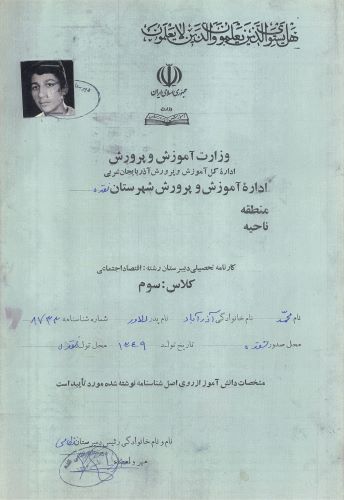 هل یستوی الذین یعلمون والذین لایعلمون
جمهوری اسلامی ایران
وزارت
وزارت آموزش و پرورش
ادارهٔ کل آموزش و پرورش آذربایجان غربی
ادارهٔ آموزش و پرورش شهرستان نقده
منطقه
ناحیه
کارنامه تحصیلی دبیرستان رشته: اقتصاد اجتماعی
کلاس: سوم
نام محمد نام خانوادگی آذرآباد نام پدر دلاور شماره شناسنامه
محل صدور نقده تاریخ تولد ۱۳۴۹ محل تولد نقده
مشخصات دانش آموز از روی اصل شناسنامه نوشته شده مورد تأیید است
نام و نام خانوادگی رئیس دبیرستان نظامی
مهر و امضاء